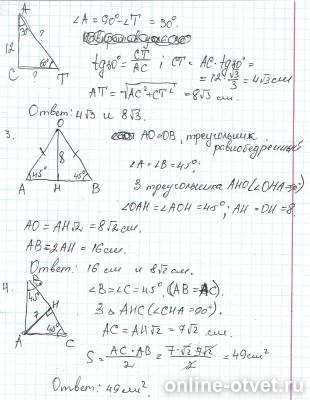 A
∠A = 90° - ∠T = 30°.
3°
tg30° = CT/AC ; CT = AC · tg30° =
12
?
= 12 · √3/3 = 4√3 см
C
60°
?
T
AT = √AC² + CT² = 8√3 см.
Ответ: 4√3 и 8√3.
3.
O
AO = OB, треугольник
равнобедренный
8
∠A = ∠B = 45°;
45°
45°
A
H
B
з треугольника AHO (∠OHA = 90°)
∠OAH = ∠AOH = 45°; AH = OH = 8
AO = AH√2 = 8√2 см.
AB = 2AH = 16 см.
Ответ: 16 см и 8√2 см.
4.
B
45°
∠B = ∠C = 45°, (AB = AC).
H
7
з ∆ AHC (∠CHA = 90°).
45°
A
C
AC = AH√2 = 7√2 см.
S = AC · AB/2 = 7·√2·7√2/2 = 49 см²
Ответ: 49 см².
online-otvet.ru